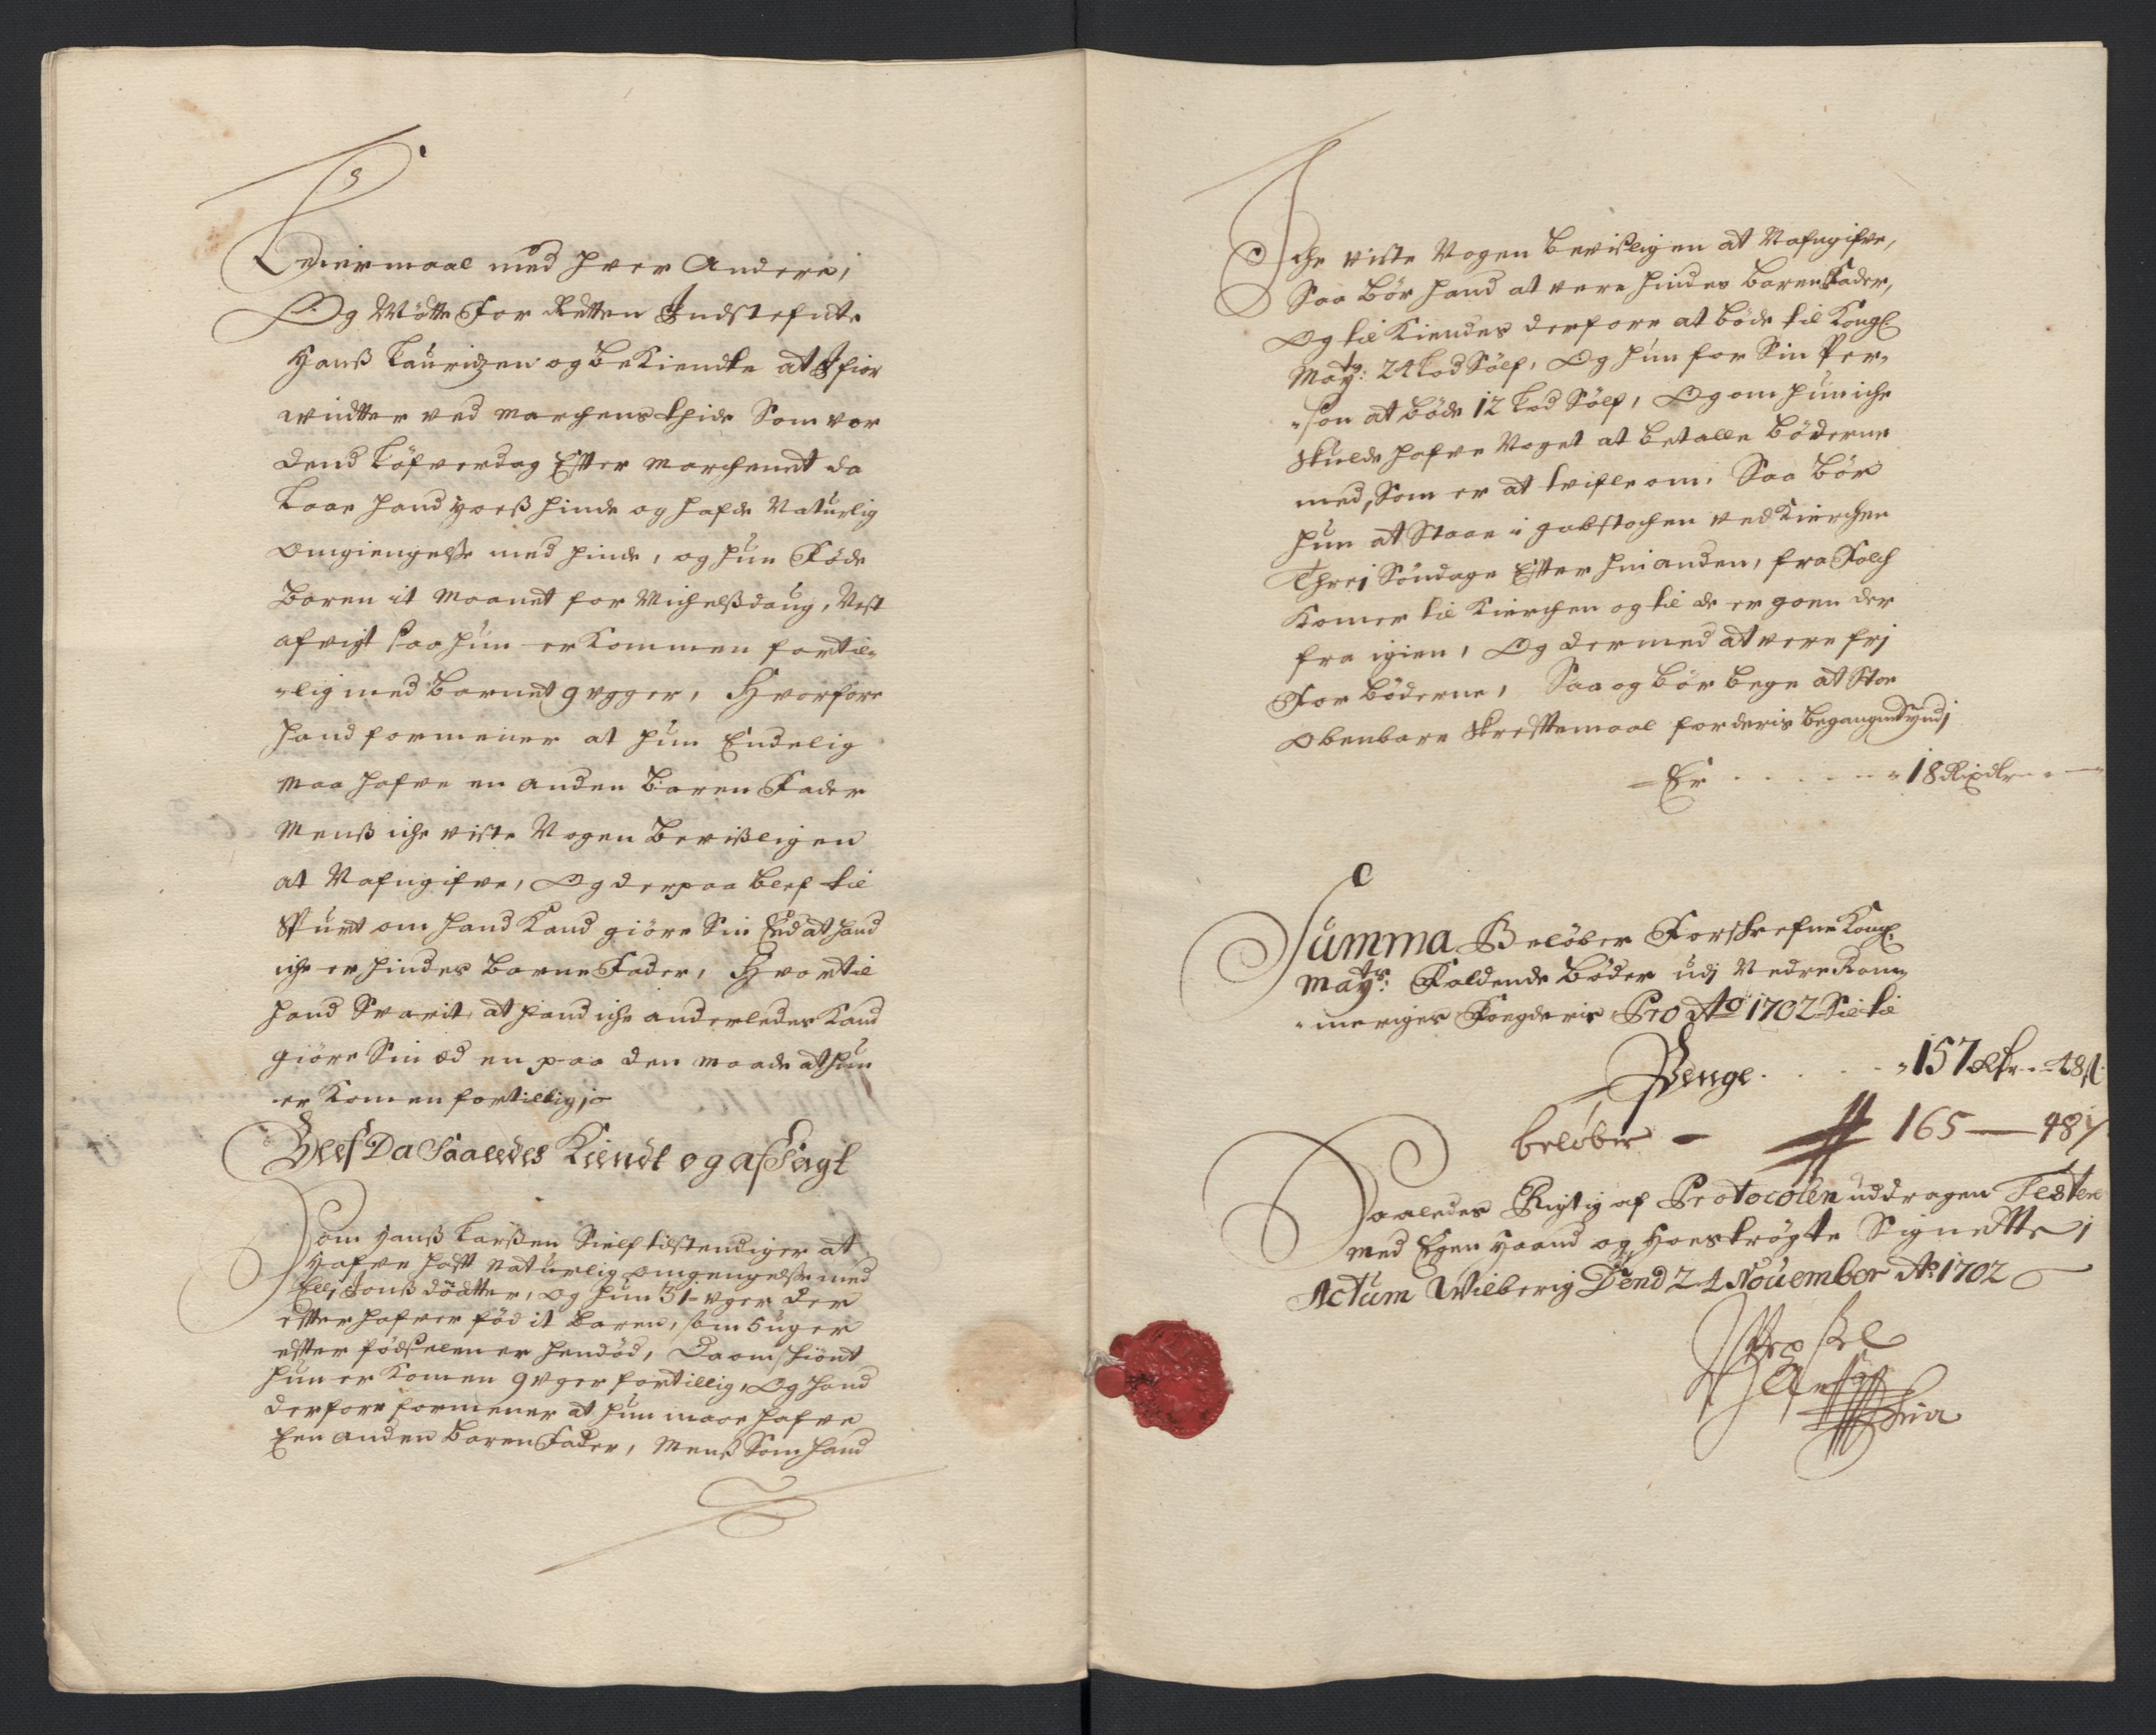 Leiermaal med hver Andere,
Og Mötte For Retten Indstefnte
Hanß Lauridzen og bekiendte at I fior
vindter ved Marchens thide Som var
dend Löfverdag Efter Marchenet da
laae hand hoeß hinde og hafde Naturlig
omgiengelße med hinde, og hun Föde
baren it Maanet for Michelßdaug, Nest
afvigt saa hun er Kommen fortil-
-lig med Barnet 9 uger, Hvorfore
hand formener at hun Endelig
maa hafve en anden Baren Fader
Menß iche viste Nogen Bevißligen
at Nafngifve, Og derpaa blef til
Spurt om hand Kand giöre Sin Eed at hand
iche er hindes Barne Fader, Hvortil
hand Svarit, at hand iche anderledes Kand
giöre Sin æd en paa den maade at hun
er Komen fortillig,
Blef Da Saaledes Kiendt og afSagt
Som Hanß Larßen Sielf tilstendiger at
Hafve hafft Naturlig omgengelße med
Elli Jonßdödtter, og hun 31 uger der
effter hafver föd it baren, som 5 uger
effter födselen er hendöd, Da omskiönt
hun er Komen 9 uger fortillig, Og hand
derfore formener at hun maae hafve
Een anden Baren Fader, Menß Som hand
Iche viste Nogen Bevißligen at Nafngifve,
Saa bör hand at vere hindes baren Fader,
Og til Kiendes derfore at böde til Kongl.
Mayts: 24 Lod Sölf, Og hun for Sin Per-
-son at böde 12 Lod Sölf, Og om hun iche
skulde hafve Noget at betalle Böderne
med, Som er at tvifle om, Saa Bör
hun at Staae i gabstochen ved Kierchen
Threj Söndage Efter hin anden, fra Folch
Komer til Kierchen og til de er goen der
fra igien, Og dermed at vere frj
For böderne, Saa og bör bege at Stae
obenbare Skrefftemaal for deris begangne Synd,
Er . . . . . . 18 Rixdlr
Summa Belöber Forschrefne Kongl.
Mayts: Faldende Böder udj Nedre Rom-
-meriges Fougderie Pro Ao 1702 Sil til
Penge . . . . 157 Rdr - 48 ß
beløber - 165 — 48 ß
Saaledes Rigtig af Protocolen uddragen Testere
med Egen Haand og Hoeströgte Signette
Actum Wilberig Dend 24 November Ao 1702